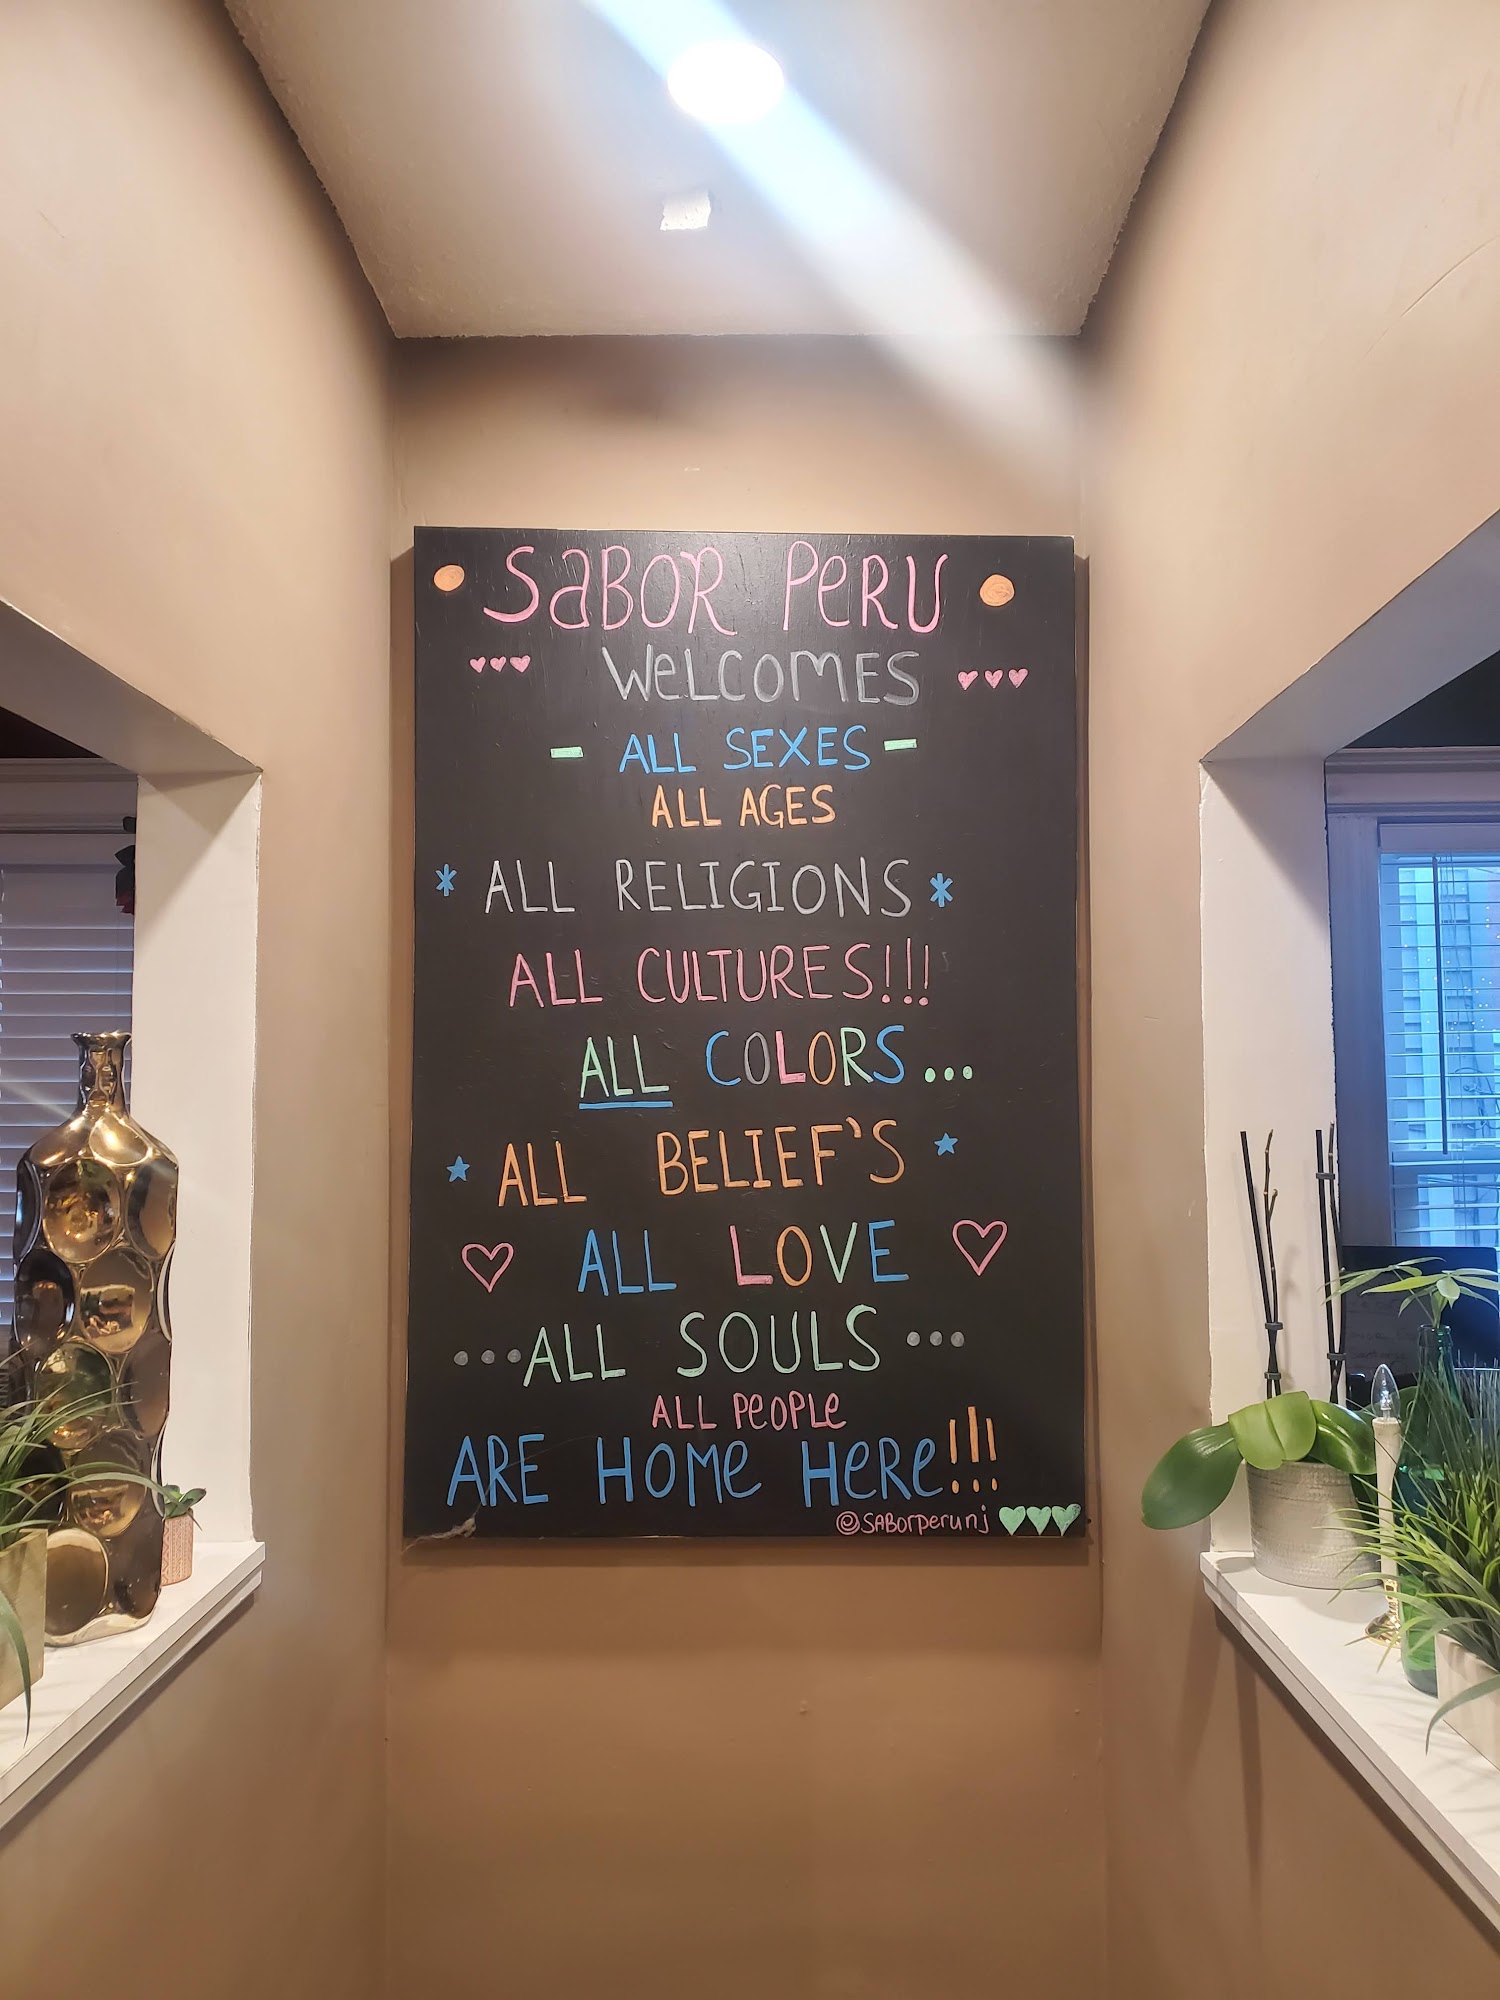 SaBOR PeRU
WeLCOMES
ALL SEXES
ALL AGES
ALL RELIGIONS
ALL CULTURES!!!
ALL COLORS...
ALL BELIEF'S
ALL LOVE
...ALL SOULS...
ALL PeOPLe
ARE HOMe HeRe!!!
@SABorperunj